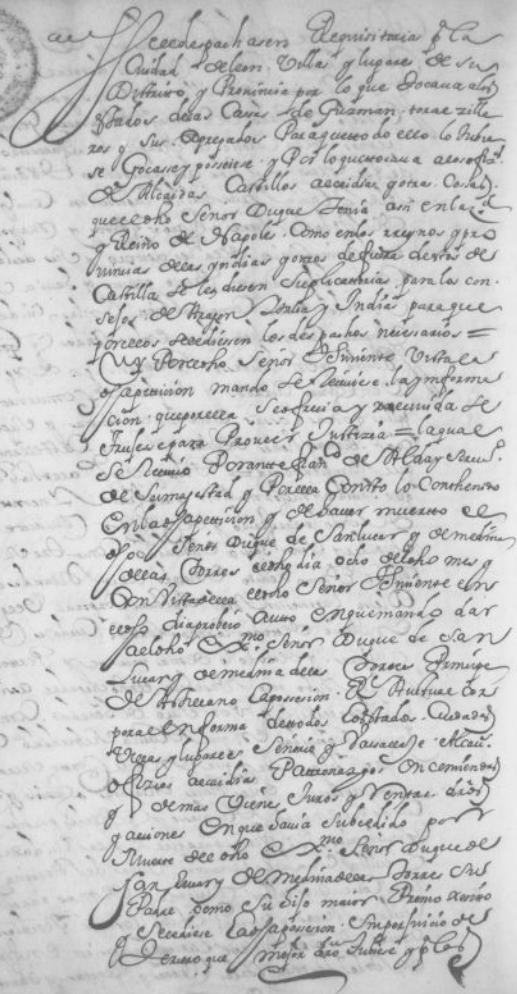 se despachasen Requisitoria pª la
Ciudad de leon Villas y lugares de su
Distrito y Provincia por lo que tocava a los
Estados de las Casas de Guzman, toral zille
ros y sus Agregados Para que todo ello lo tubie
se Gocasse y posseiese y Por lo que tocava a los offiº
de Alcaidias Castillos alcaidias y otras Cosas
que el dho Señor Duque Tenia assi en la
y Reino de Napoles Como en los rreynos y pro
uincias de las yndias y otros de fuera destos de
Castilla se les diesen Suplicatorias para los con
sejos de Aragon Italia y Indias para que
por ellos se le diesen los despachos necesarios =
Y Por el dho Señor Theniente Vista la
dha peticion mando se Reciuiese la ynforma
cion que por ella se ofrecia y rreceuida se
Trujese para Proueer Justicia = la qual
Se Reciuio Por ante de Alday Scriuº
de Su magestad y Por ella Consto lo Conthenido
En la dha peticion y de hauer muerto el
dho Señor Duque de San lucar y de medina
de las Torres el dho dia ocho del dho mes y
Con Vista della el dho Señor Theniente en
el dho dia probeio Auto en que mando dar
al dho Exmo Señor Duque de San
Lucar y de medina de las Torres Principe
de Asthillano la posesion Rl Autual cor
poral En forma de todos los Estados Ciudades
Villas y lugares Señorio y Vasallaje Alcau
officios alcaidias Patronazgos encomiendas
y demas Vienes Juros y Rentas drºs
y aciones En que hauia Subcedido por
Muerte del dho Exmo Señor Duque de
San Lucar y de medina de las Torres Su
Padre Como Su hijo maior
y Se le diese La dha posesion Sin perjuicio de
Terzero que mejor drº tubiese y pª las